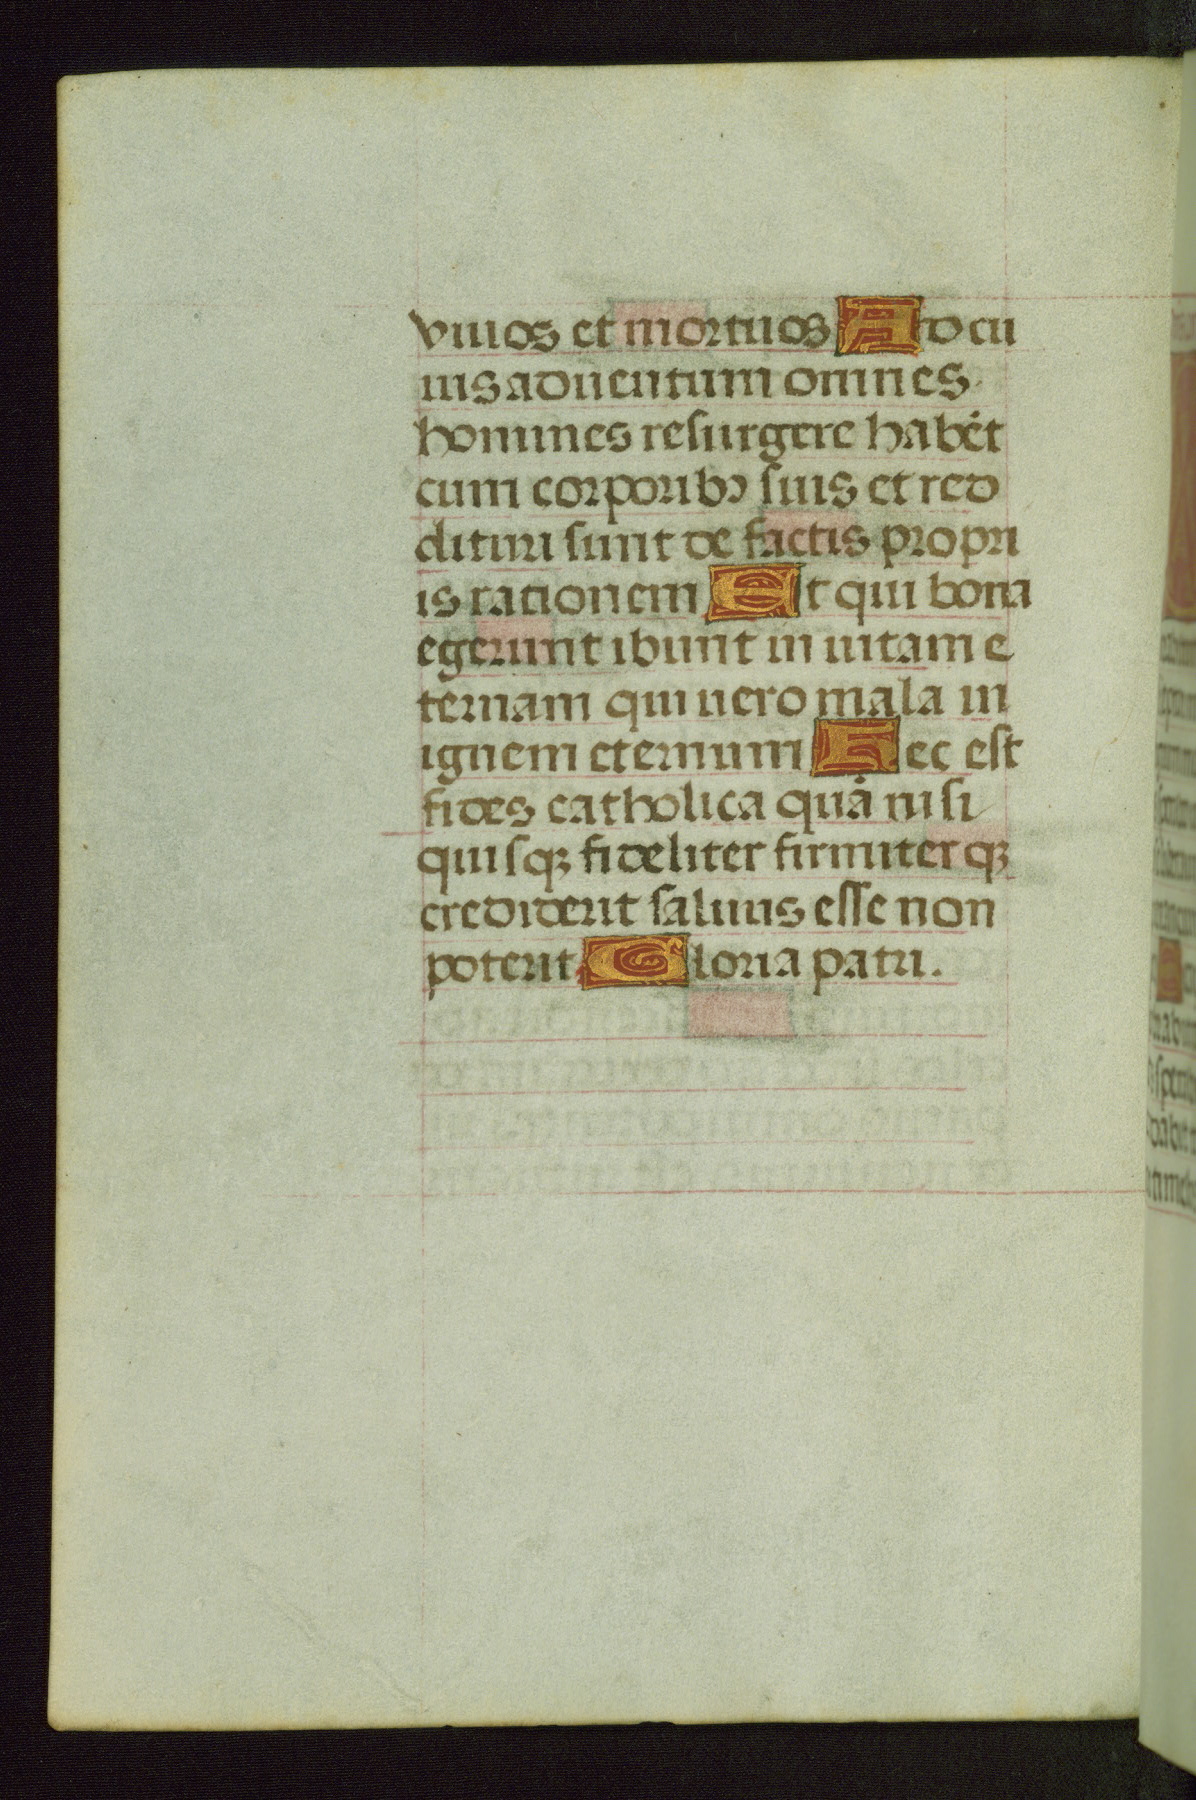 viuos et mortuos Ad cu
ius aduentum omnes
homines resurgere habēt
cum coꝛpoꝛibꝰ suis et red
dituri sunt de factis propri
is rationem Et qui bona
egerunt ibunt in uitam e
ternam qui uero mala in
ignem eternum Hec est
fides catholica quā nisi
quisqꝫ fideliter firmiterqꝫ
crediderit saluus esse non
poterit Gloria patri.